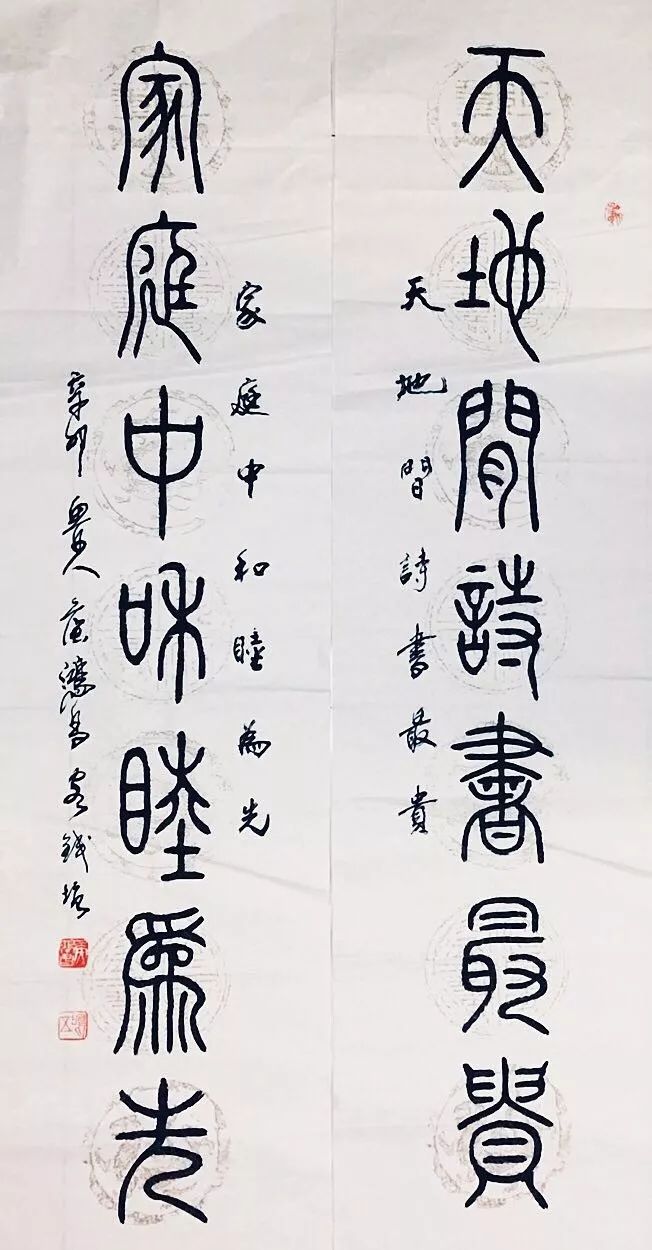 天地閒詩書最貴
天地間詩書最貴
家庭中和睦為先
家庭中和睦爲先
辛卯魯人